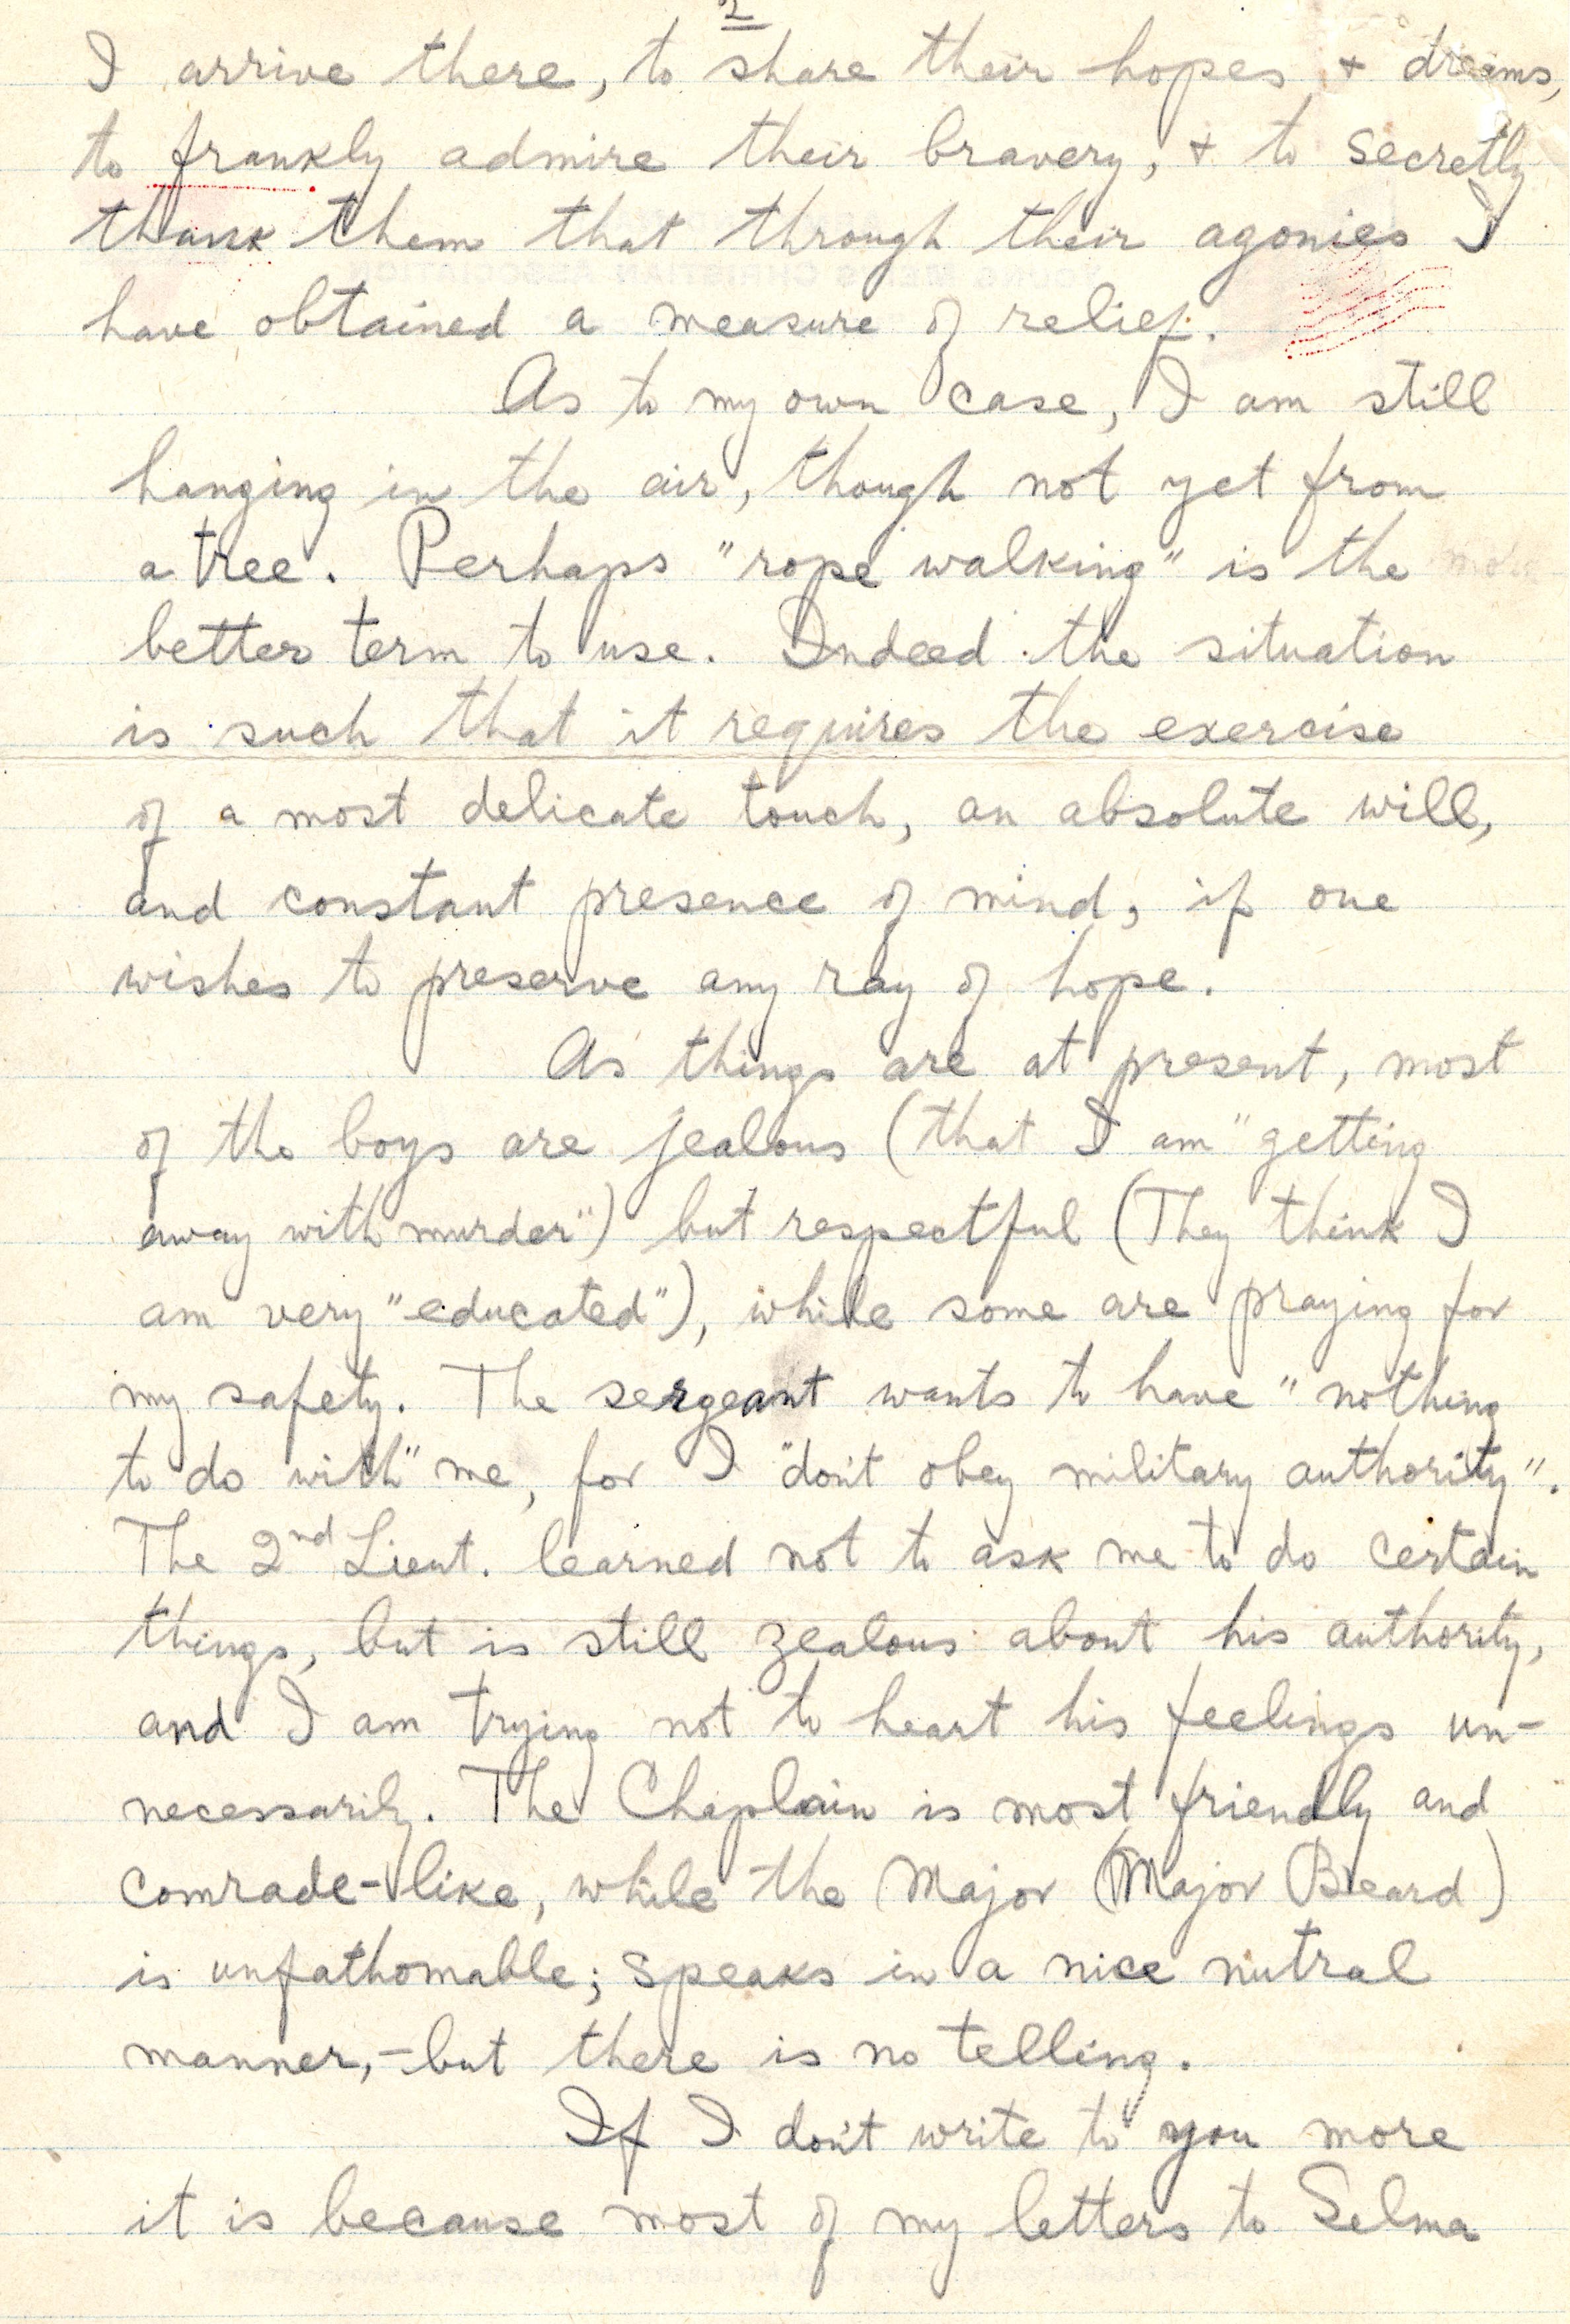 2
I arrive there, to share their hopes + dreams,
to frankly admire their bravery, + to secretly
thank them that through their agonies I
have obtained a measure of relief.
As to my own case, I am still
hanging in the air, though not yet from
a tree. Perhaps "rope walking" is the
better term to use. Indeed the situation
is such that it requires the exercise
of a most delicate touch, an absolute will,
and constant presence of mind, if one
wishes to preserve any ray of hope.
As things are at present, most
of the boys are jealous (that I am "getting
away with murder") but respectful (They think I
am very "educated"), while some are praying for
my safety. The sergeant wants to have "nothing
to do with" me, for I "don't obey military authority".
The 2nd Lieut. learned not to ask me to do certain
things, but is still zealous about his authority,
and I am trying not to heart his feelings un-
necessarily. The Chaplain is most friendly and
comrade-like, while the Major (Major Beard)
is unfathomable; speaks in a nice nutral
manner, - but there is no telling.
If I don't write to you more
it is because most of my letters to Selma